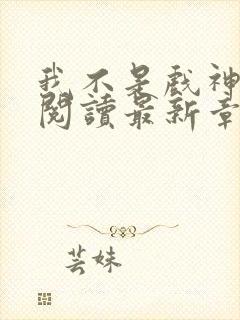 我不是戲神
閱讀最新章
芸妹